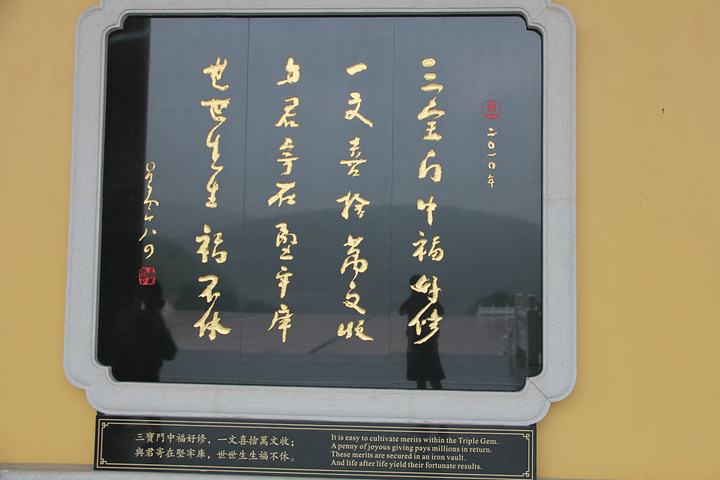 二〇一〇年
三寶門中福好修
一文喜捨萬文收
與君寄在堅牢庫
世世生生福不休
星雲
三寶門中福好修，一文喜捨萬文收；
與君寄在堅牢庫，世世生生福不休。
It is easy to cultivate merits within the Triple Gem.
A penny of joyous giving pays millions in return.
These merits are secured in an iron vault.
And life after life yield their fortunate results.